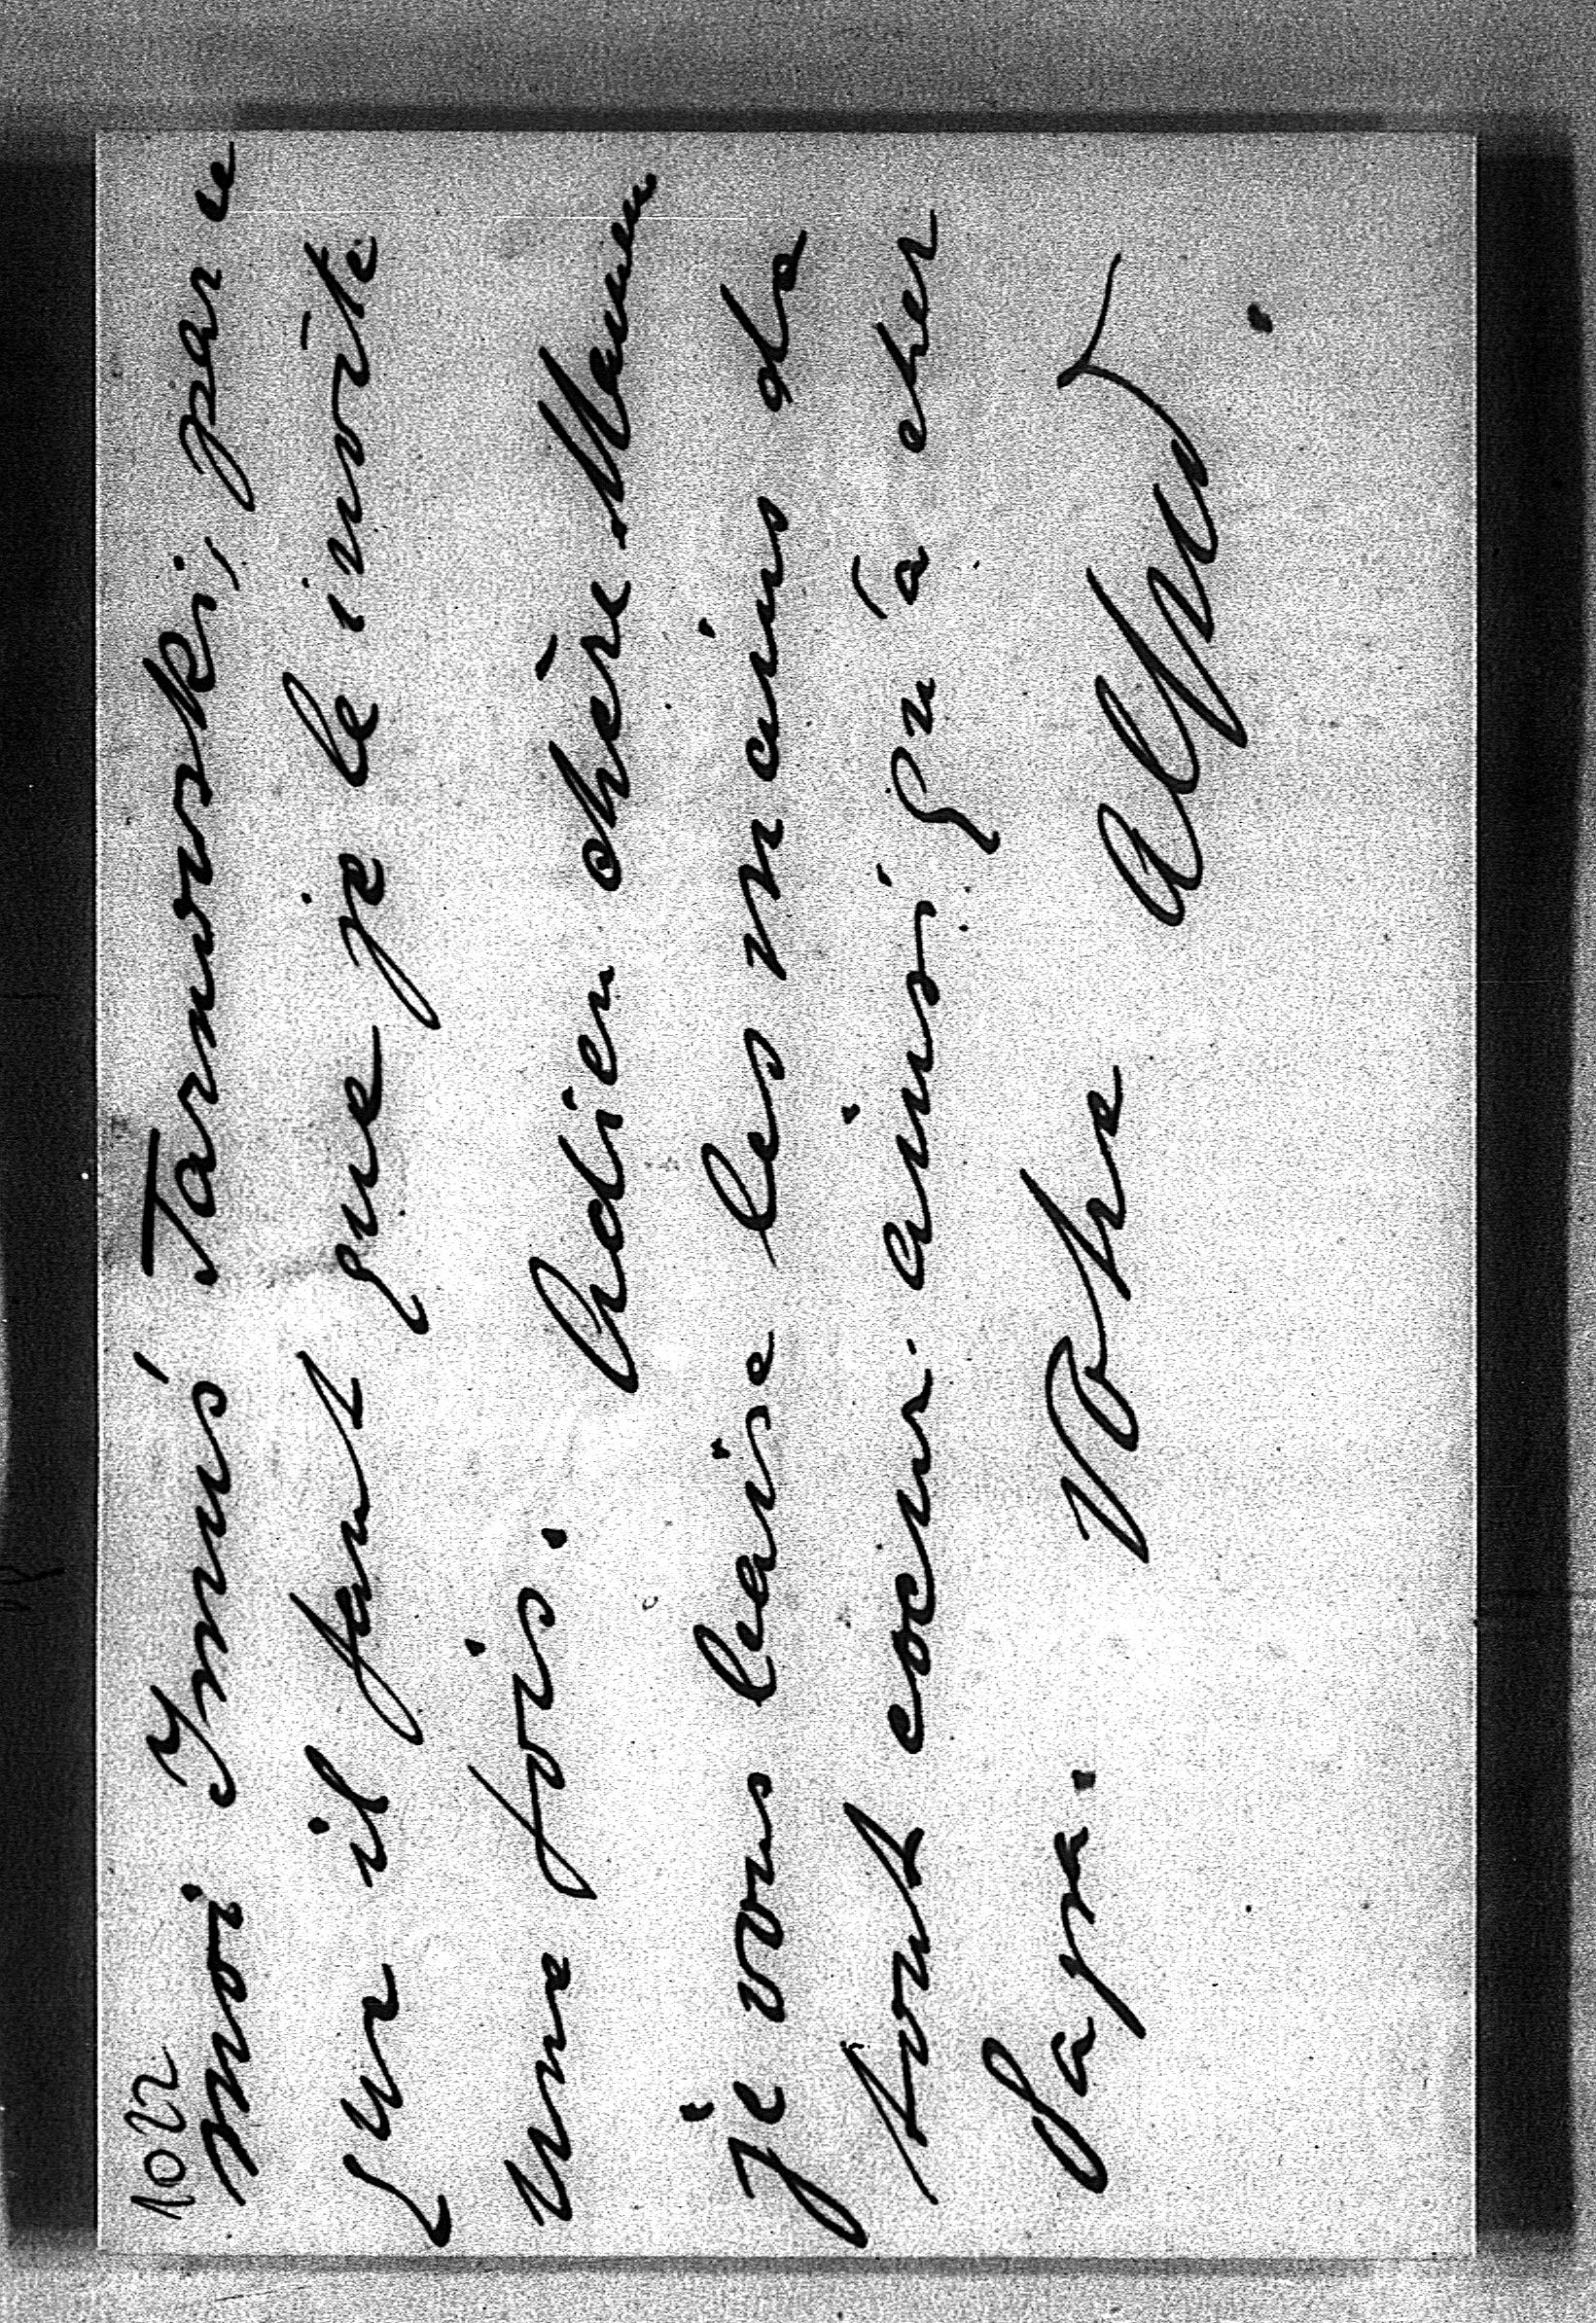 1022
moi Ymuś Tarnowski, parce
qu il faut que je le invite
une fois. Adieu chère Maman
je vous baise les mains de
tout coeur. ainsi qu'à cher
Papa. Votre Alfred.